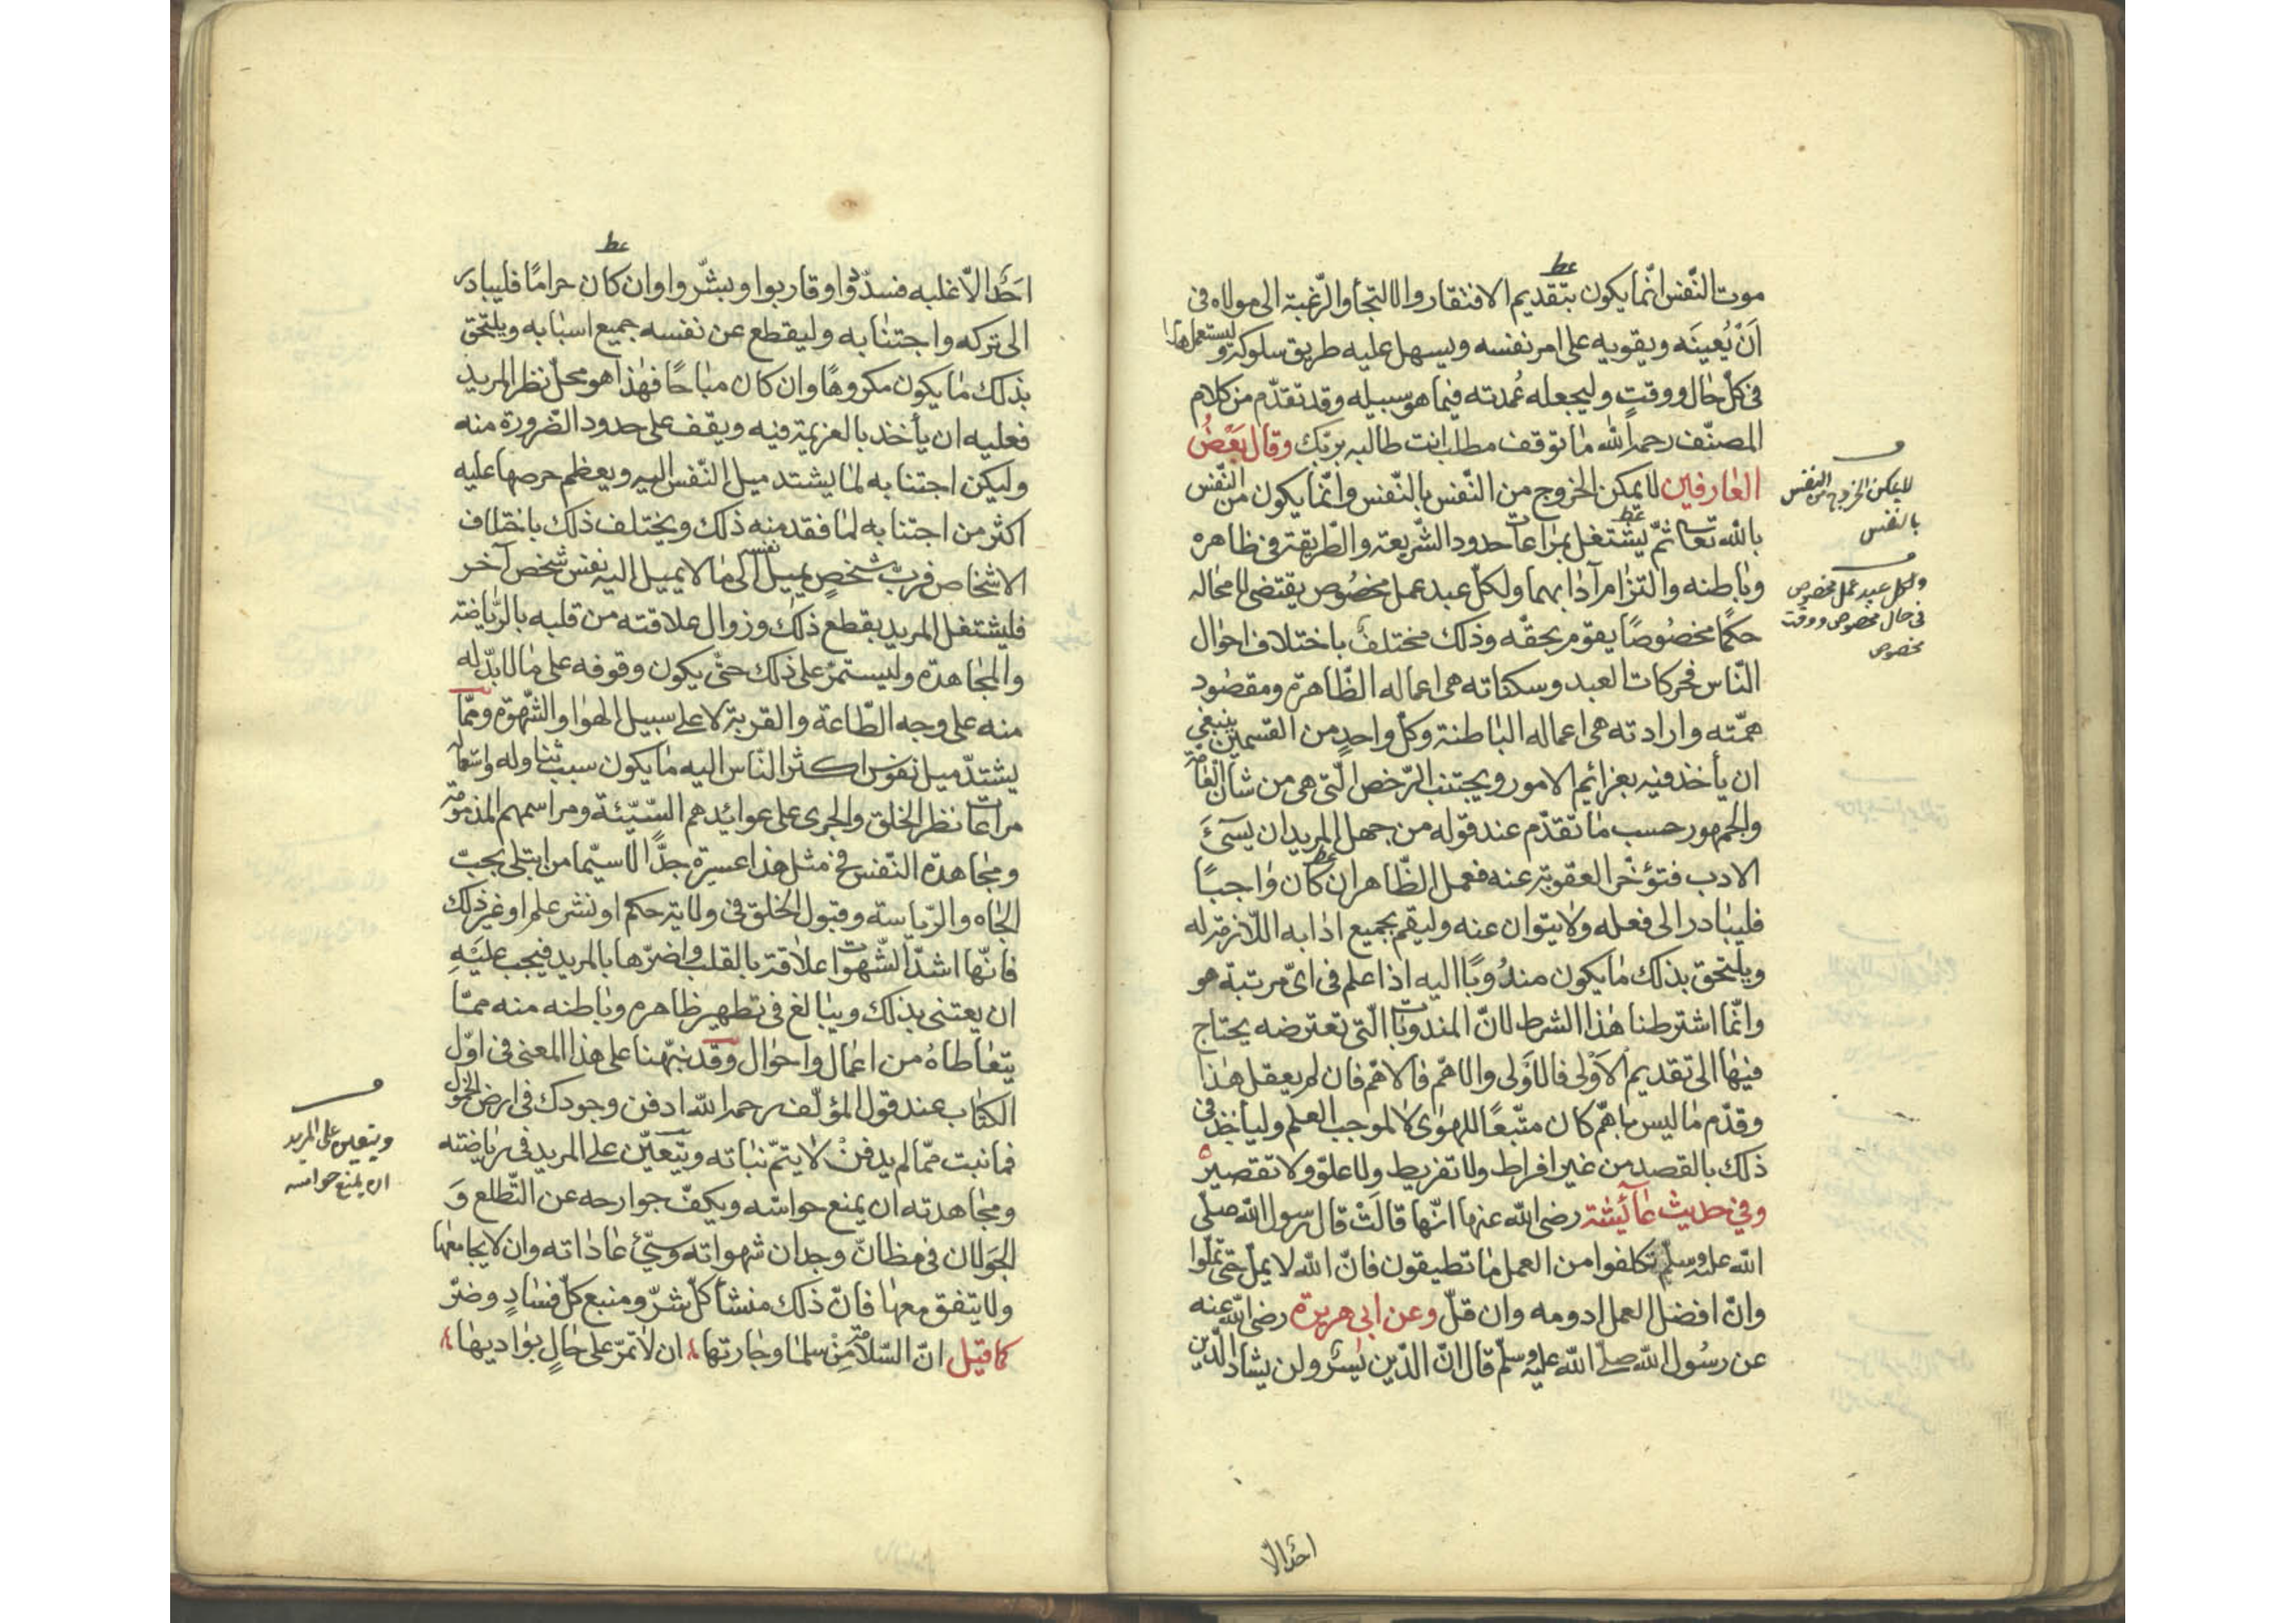 موت النّفس انّما يكون بتقديم الافتقار والالتجأ والرّغبة الى مولاه فى
اَنْ يُعينَه ويقويه على امر نفسه ويسهل عليه طريق سلوكه وليستعمل هذا
فى كلّ حال ووقتٍ وليجعله عُمدته فيما هو سبيله وقد تقدّم من كلام
المصنّف رحمه الله ما توقف مطلب انت طالبه بربّك وقال بعضُ
العارفين لا يمكن الخروج من النّفس بالنّفس وانّما يكون من النّفس
بالله تعالى ثمّ ليشتغل بمراعات حدود الشّريعة والطّريقة فى ظاهره
وباطنه والتزام آدابهما ولكلّ عبد عمل مخصُوص يقتضى لا محاله
حكمًا مخصُوصًا يقوم بحقّه وذلك مختلفٌ باختلاف احوال
النّاس فحركات العبد وسكناته هى اعماله الظّاهرة ومقصُود
همّته وارادته هى اعماله الباطنة وكلّ واحدٍ من القسمين ينبغى
ان يأخذ فيه بعزائم الامور ويجتنب الرّخص الّتى هى من شأن العامّة
والجمهور حسب ما تقدّم عند قوله من جهل المريد ان يسئَ
الادب فتؤخّر العقوبة عنه فعمل الظّاهر ان كان واجبًا
فليبادر الى فعله ولا يتوان عنه وليقم بجميع ادابه اللّازمة له
ويلتحق بذلك ما يكون مندُوبًا اليه اذا علم فى اىّ مرتبة هو
وانّما اشترطنا هذا الشرط لانّ المندوبات الّتى تعترضه يحتاج
فيها الى تقديم الاَوْلى فالاَوْلى والاهمّ فالاهمّ فان لم يعقل هذا
وقدّم ما ليس باهمّ كان متّبعًا للهوى لا لموجب العلم وليأخذ فى
ذلك بالقصد من غير افراط ولا تفريط ولا علوّ ولا تقصير
وفي حديث عائشة رضى الله عنها انّها قالَتْ قال رسول الله صلّى
الله عليه وسلّم تكلفوا من العمل ما تطيقون فانّ الله لا يملّ حتى تملّوا
وانّ افضل العمل ادومه وان قلّ وعن ابى هريرة رضى الله عنه
عن رسُول الله صلّى الله عليه وسلّم قال انّ الدّين يُسْر ولن يشادّ الدّين
احدٌ الّا
لا يمكن الخروج من النفس
بالنفس
ولكل عبد عمل مخصوص
فى حال مخصوص ووقت
مخصوص
احَدٌ الّا غلبه فسدّدوا وقاربوا وبشّروا وان كان حرامًا فليبادر
الى تركه واجتنابه وليقطع عن نفسه جميع اسبابه ويلتحق
بذلك ما يكون مكروهًا وان كان مباحًا فهذا هو محلّ نظر المريد
فعليه ان يأخذ بالعزيمة فيه ويقف على حدود الضّرورة منه
وليكن اجتنابه لما يشتد ميل النّفس اليه ويعظم حرصها عليه
اكثر من اجتنابه لما فقد منه ذلك ويختلف ذلك باختلاف
الاشخاص فربّ شخصٍ يميل نفسه الى ما لا يميل اليه نفس شخص آخر
فليشتغل المريد بقطع ذلك وزوال علاقته من قلبه بالرّياضة
والمجاهدة وليستمرّ على ذلك حتّى يكون وقوفه على ما لا بدّ له
منه على وجه الطّاعة والقربة لا على سبيل الهوا والشّهوة وممّا
يشتدّ ميل نفوس اكثر النّاس اليه ما يكون سبب تناوله واستعماله
مراعات نظر الخلق والجرى على عوائدهم السّيّئة ومراسمهم المذمومة
ومجاهدة النّفس فى مثل هذا عسيرة جدًّا لا سيّما من ابتلى بحبّ
الجاه والرّياسة وقبول الخلق فى ولاية حكم او نشر علم او غير ذلك
فانّها اشدّ الشّهوات علاقة بالقلب واضرّها بالمريد فيجب عليَهِ
ان يعتنى بذلك ويبالغ فى تطهير ظاهره وباطنه منه ممّا
يتعاطاهُ من اعمال واحوال وقد نبّهنا على هذا المعنى فى اوّل
الكتاب عند قول المؤلّف رحمه الله ادفن وجودك فى ارض الخمول
فما نبت ممّا لم يدفنْ لا يتمّ نباته ويتعيّن على المريد فى رياضته
ومجاهدته ان يمنع حواسّه ويكفّ جوارحه عن التّطلع وَ
الجَولان فى مظانّ وجدان شهواته وسيّئ عاداته وان لا يجامعها
ولا يتفق معها فانّ ذلك منشأ كلّ شرّ ومنبع كلّ فسَادٍ وضرّ
كما قيل انّ السّلامة مِنْ سلما وجارتها ان لا تمرّ على حالٍ بواديها
ويتعين على المريد
ان يمنع حواسه